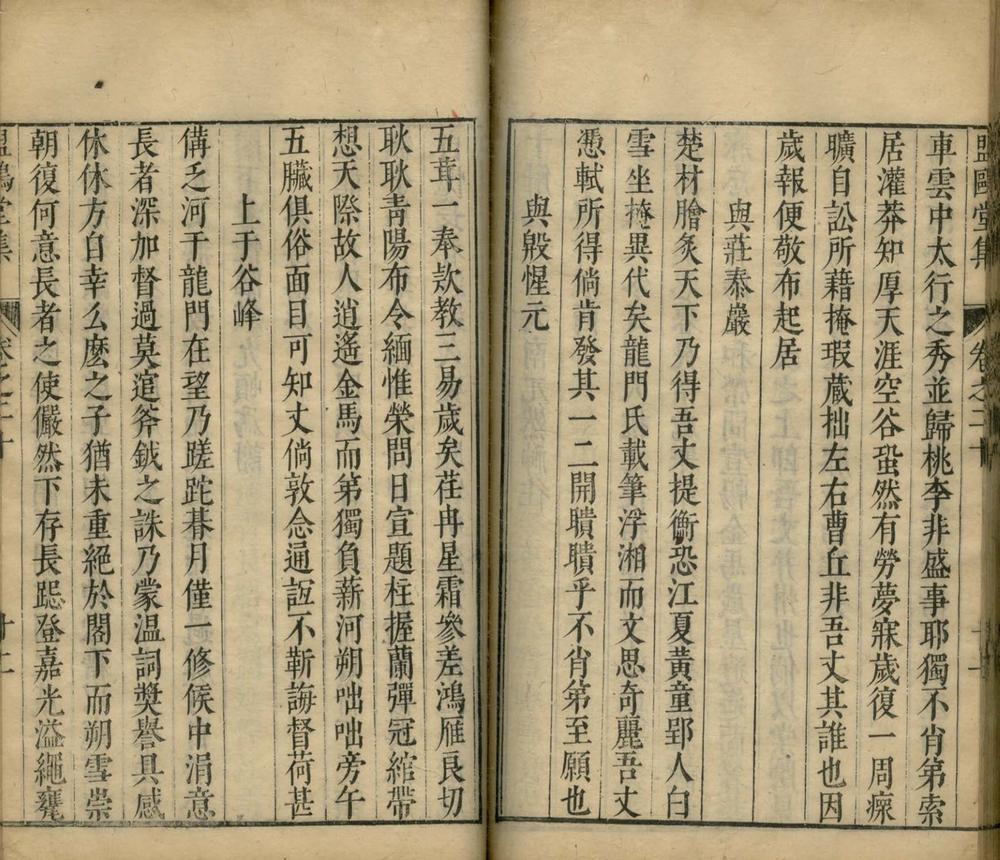 盟鷗堂集 卷之二十
車雲中太行之秀並歸桃李非盛事耶獨不肖第索
居灌莽知厚天涯空谷蛩然有勞夢寐歲復一周瘝
曠自訟所藉掩瑕蔵拙左右曹丘非吾丈其誰也因
歲報便敬布起居
與莊泰嚴
楚材膾炙天下乃得吾丈提衡恐江夏黃童郢人白
雪坐掩異代矣龍門氏載筆浮湘而文思奇麗吾丈
憑軾所得倘肯發其一二開聵聵乎不肖第至願也
與殷惺元
五茸一奉欵教三易歲矣荏冉星霜參差鴻雁良切
耿耿青陽布令緬惟榮問日宣題柱握蘭彈冠綰帶
想天際故人逍遙金馬而第獨負薪河朔咄咄旁午
五臟俱俗面目可知丈倘敦念逼詿不靳誨督荷甚
上于谷峰
僃之河干龍門在望乃蹉跎朞月僅一修候中涓意
長者深加督過莫逭斧鉞之誅乃蒙温詞奬譽具感
休休方自幸么麽之子猶未重絕於閣下而朔雪崇
朝復何意長者之使儼然下存長跽登嘉光溢繩甕
盟鷗堂集 卷之二十 十二